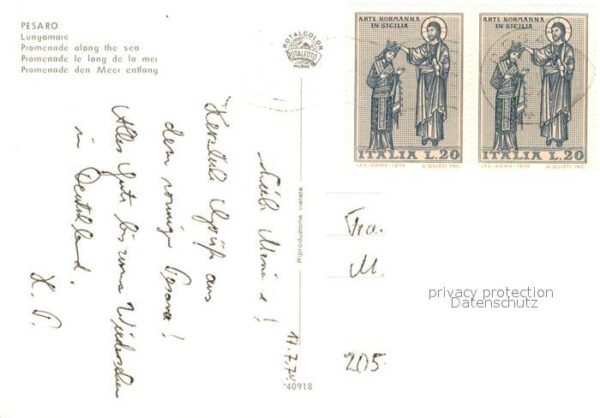 PESARO
Lungomare
Promenade along the sea
Promenade le long de la mer
Promenade den Meer entlang
ROTALCOLOR
ROTALFOTO
MILANO
ARTE NORMANNA
IN SICILIA
ITALIA L.20
I.P.S.-ROMA-1974
ARTE NORMANNA
IN SICILIA
ITALIA L.20
I.P.S.-ROMA-1974
17.7.74
Herzliche Grüße aus
dem sonnigen Pesaro!
Alles Gute bis zum Wiedersehen
in Deutschland.
Riproduzione vietata
40918
Frau
M.
205
privacy protection
Datenschutz